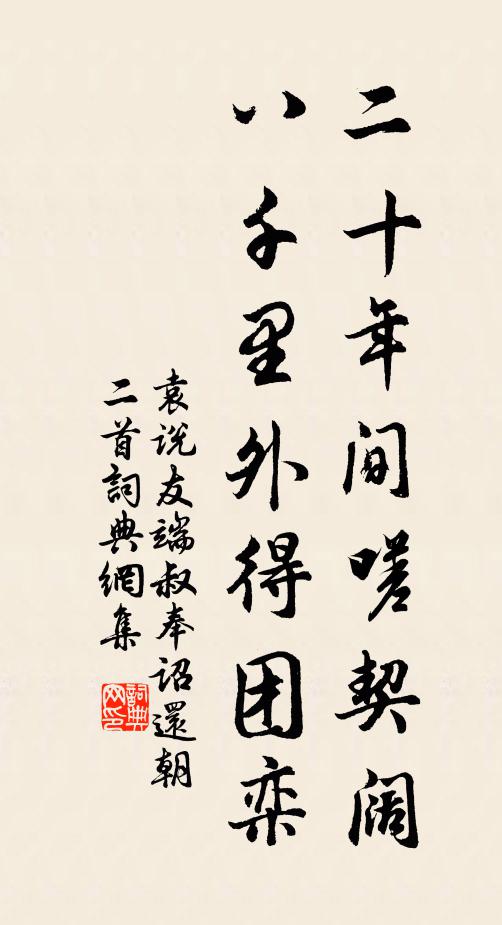 二十年间嗟契阔
八千里外得团栾
袁说友端叔奉诏還朝
二首詞典網集
詞典网印